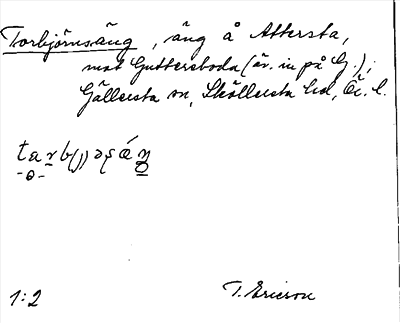 Torbjörnsäng, äng å Attersta,
mot Guttersboda (äv. in på G.);
Gällersta sn, Sköllersta hd, Ör. l.
1:2 T. Ericson